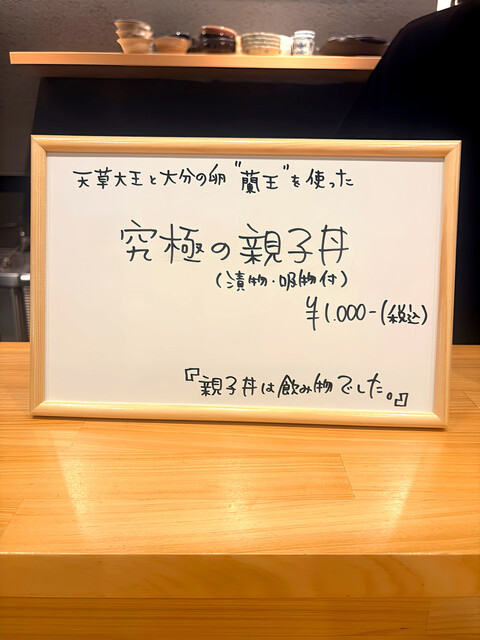 天草大王と大分の卵"蘭王"を使った
究極の親子丼
(漬物・吸物付)
¥1.000-(税込)
『親子丼は飲み物でした。』